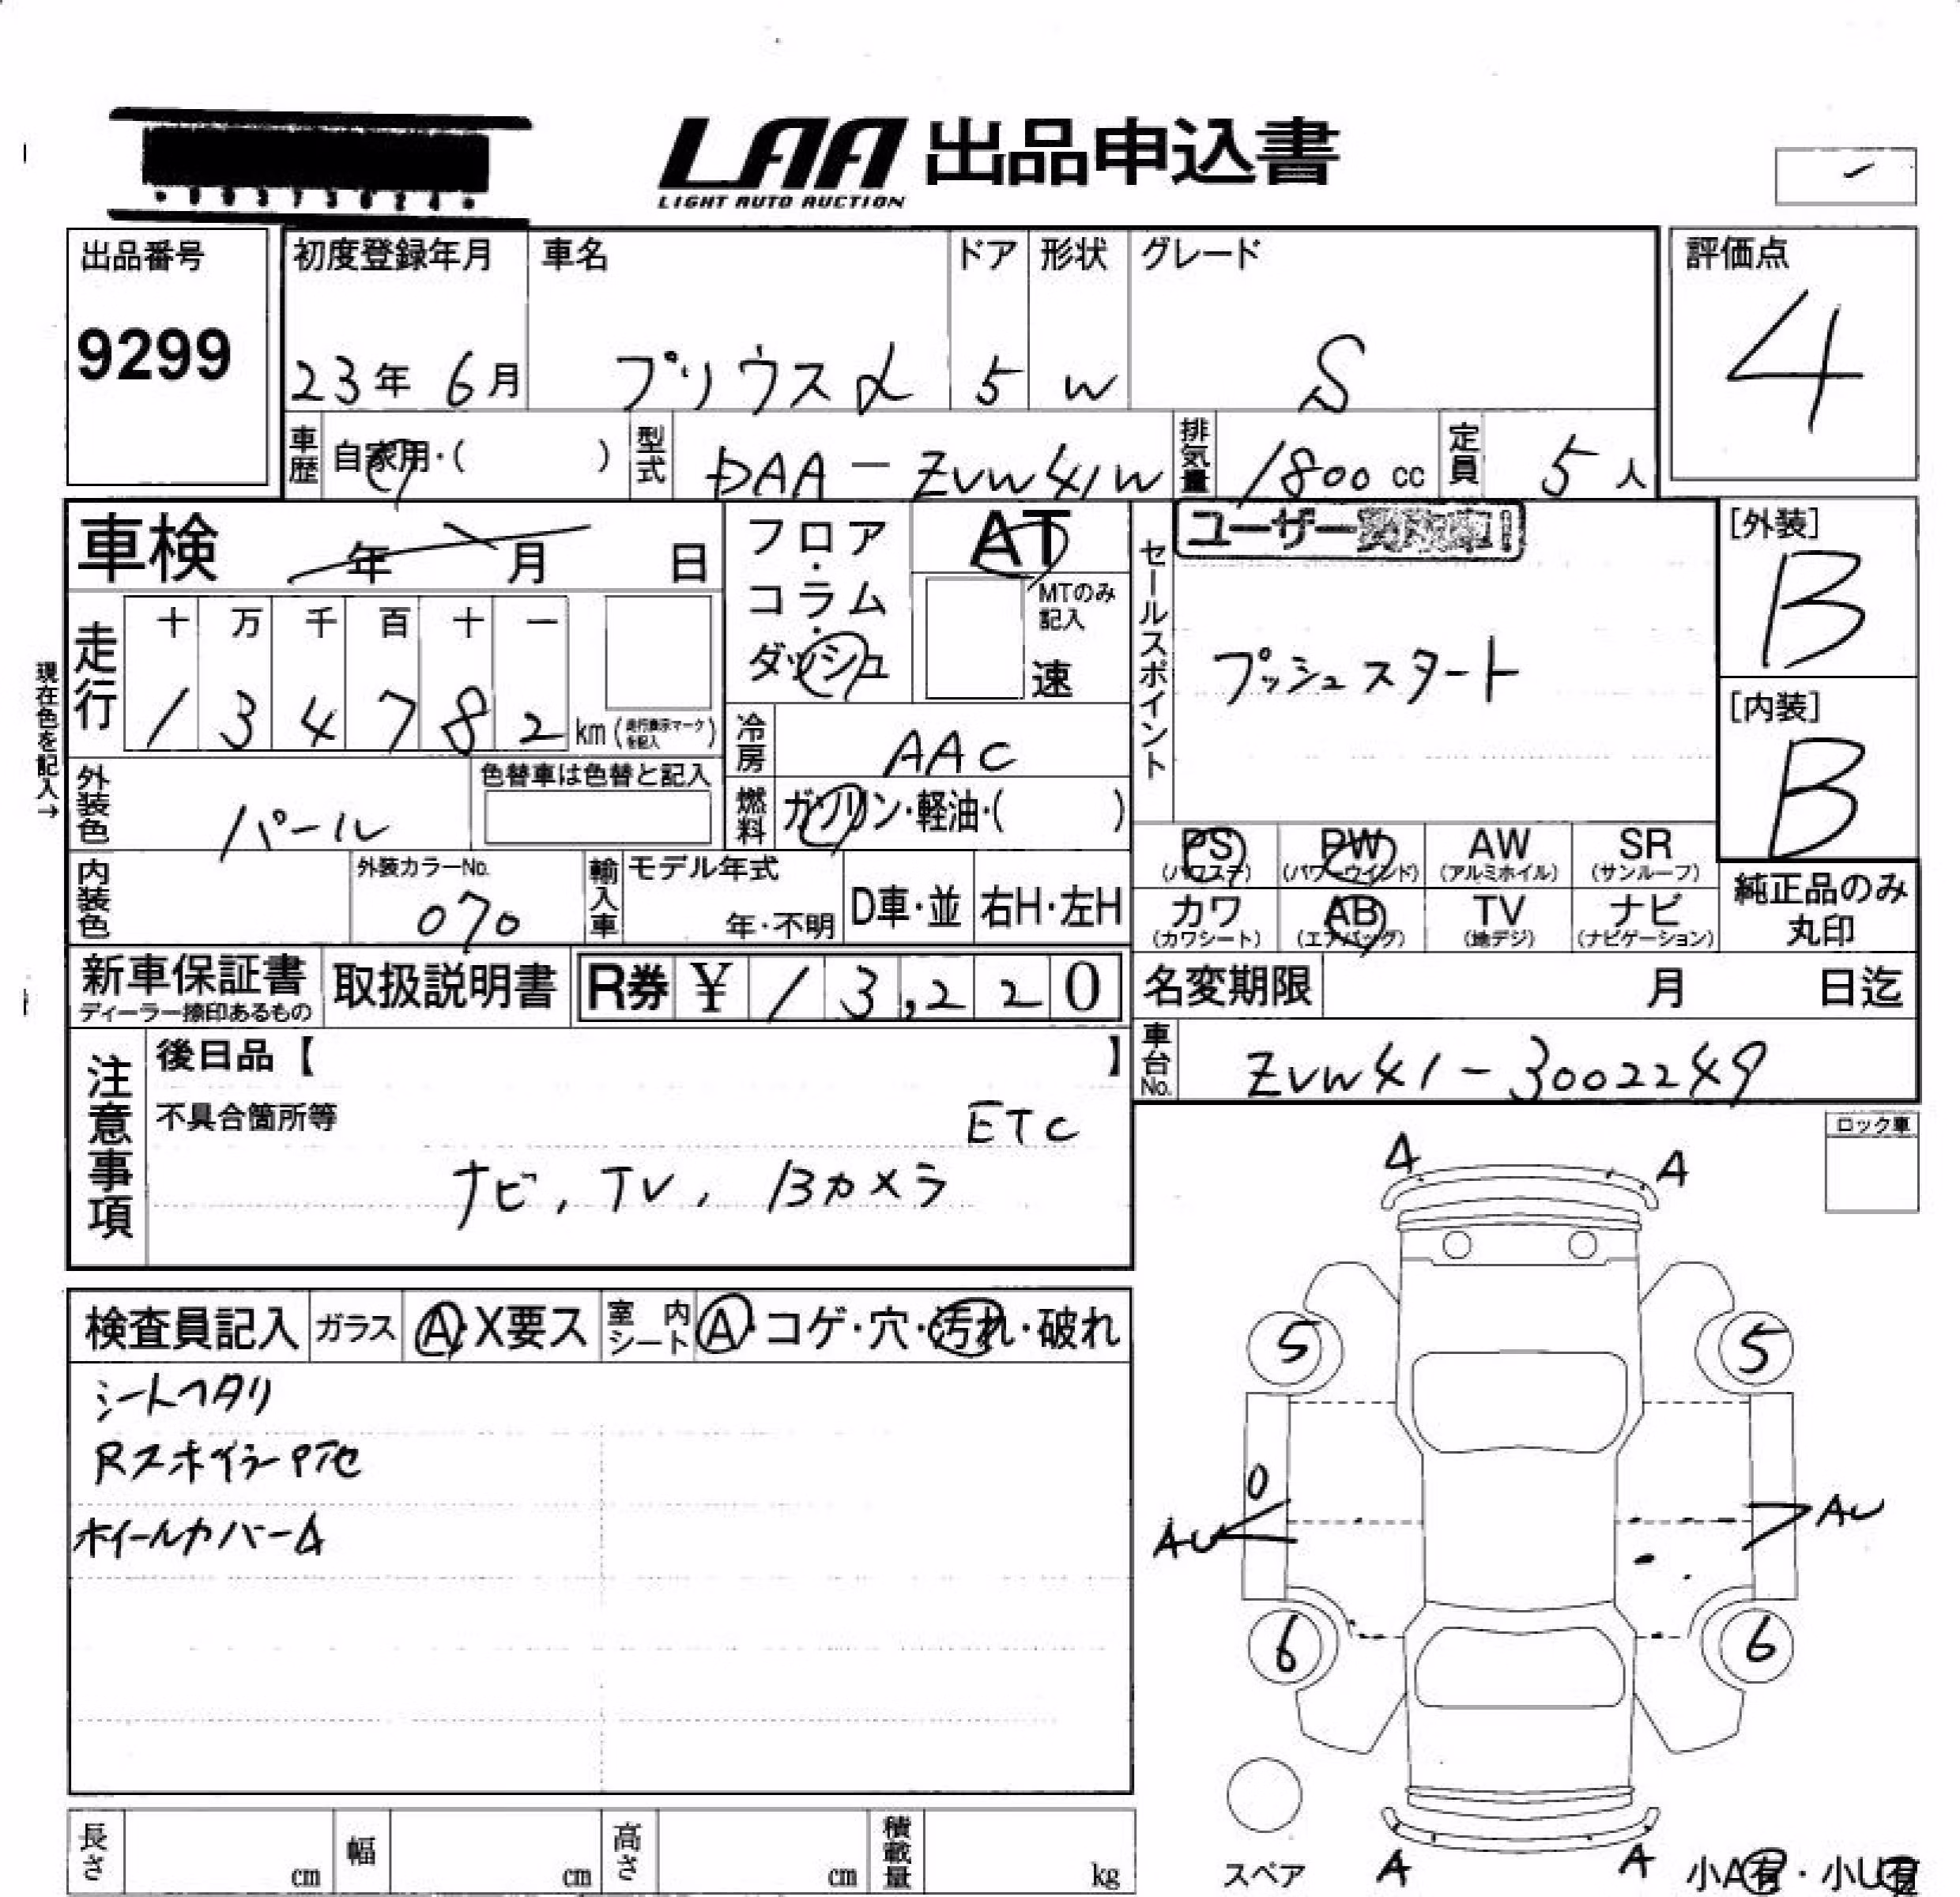 LAA 出品申込書
LIGHT AUTO AUCTION
出品番号
9299
初度登録年月
23年 6月
車名
プリウスα
ドア
5
形状
W
グレード
S
評価点
4
車歴 自家用・( )
型式 DAA-ZVW41W
排気量 1800 cc
定員 5人
車検 年 月 日
フロア・コラム・ダッシュ
AT
MTのみ記入
速
セールスポイント
ユーザー
プッシュスタート
[外装]
B
[内装]
B
現在色を記入→
走行
十 万 千 百 十 一
1 3 4 7 8 2 km (走行表示マークを記入)
冷房 AAC
燃料 ガソリン・軽油・( )
外装色 パール
色替車は色替と記入
内装色
外装カラーNo.
070
輸入車
モデル年式
年・不明
D車・並
右H・左H
PS (パワステ)
PW (パワーウインド)
AW (アルミホイル)
SR (サンルーフ)
カワ (カワシート)
AB (エアバッグ)
TV (地デジ)
ナビ (ナビゲーション)
純正品のみ
丸印
新車保証書
ディーラー捺印あるもの
取扱説明書
R券 ¥ 13,220
名変期限 月 日迄
車台No. ZVW41-3002249
注意事項
後日品【 】
不具合箇所等
ETC
ナビ, TV, Bカメラ
ロック車
検査員記入
ガラス A・X要ス
室内シート A・コゲ・穴・汚れ・破れ
シートヘタリ
Rスポイラー P
ホイールカバーA
A A
5 5
0
AU AU
6 6
スペア
A A
小A有・小U有
長さ cm
幅 cm
高さ cm
積載量 kg